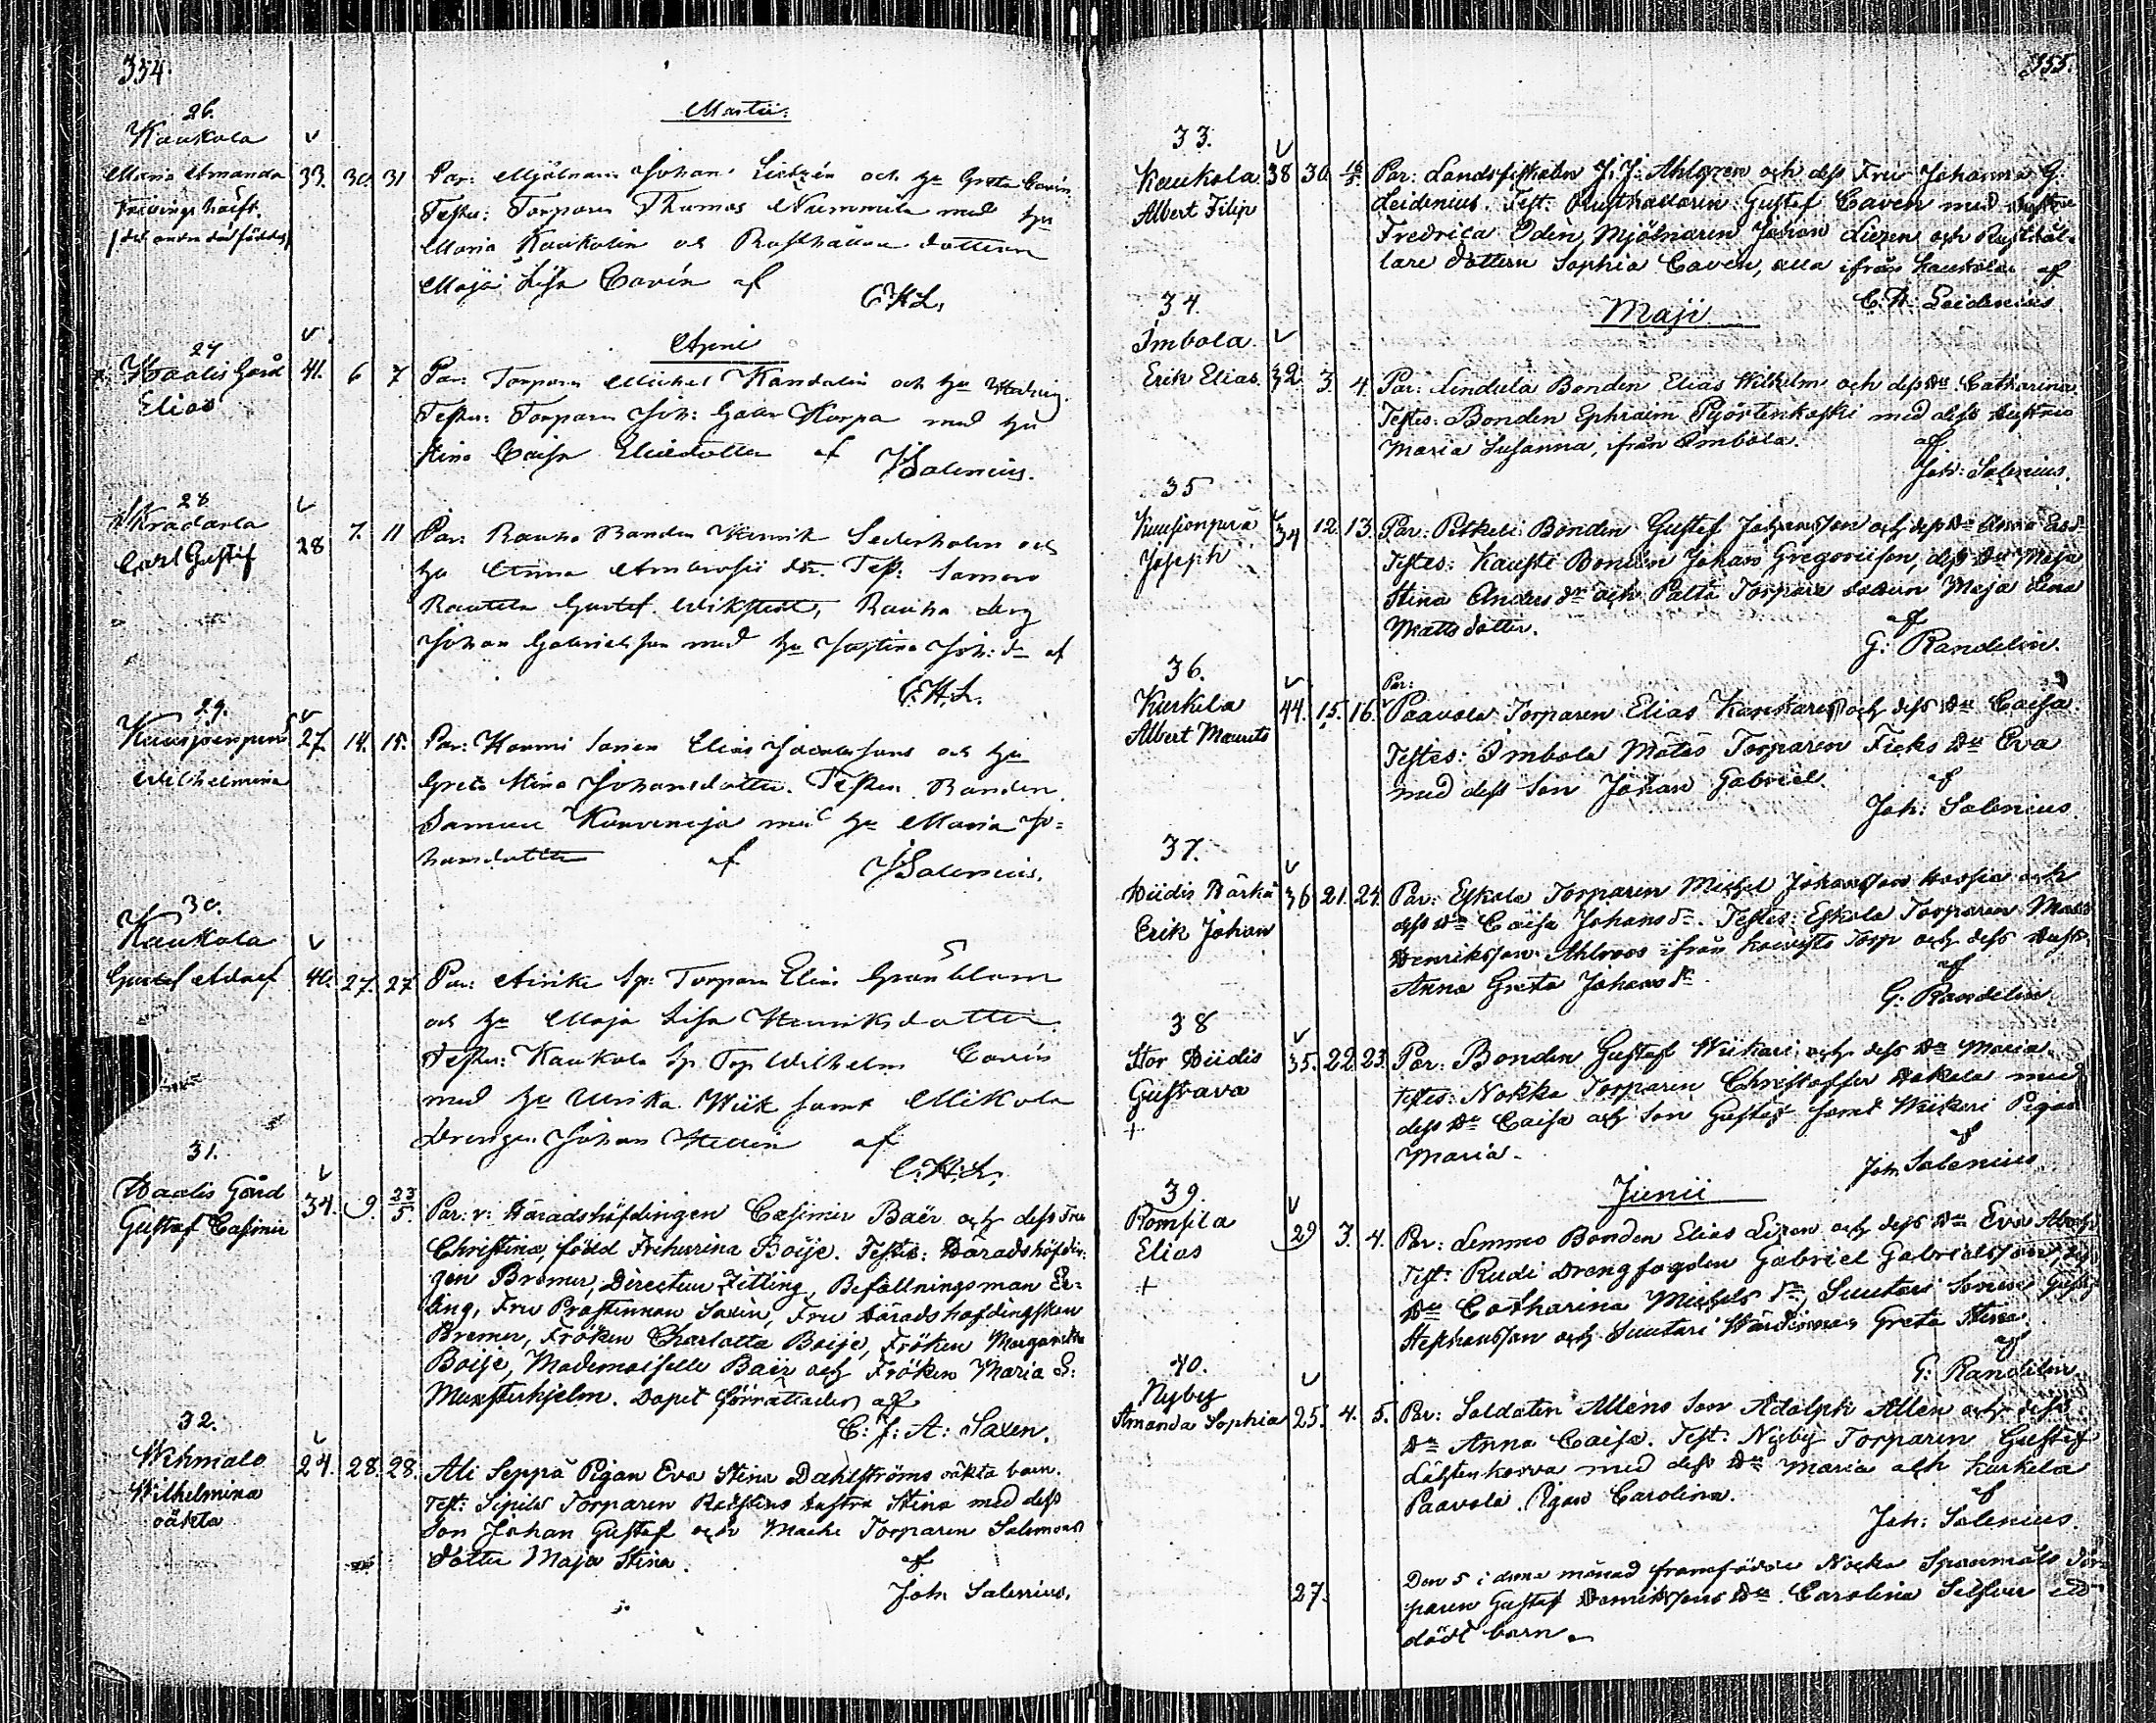 354.
Martii:
26.
Kaukola
Maria Amanda
Tvillings hälft.
33. 30. 31
Par: Mjölnarn Johan Lietzén och hu Greta Cavén
Testes: Torparn Thomas Nummila med hu
Maria Kaukolin och Rusthållare dottren
Maja Lisa Cavén af
C.H.L.
Aprill
27
Haalis Gård
Elias
41. 6 7
Par: Torparn Michel Kandelin och hu Hedvig.
Testes: Torparn Joh: Korpa med hu
Stina Caisa Eliedotter af
JSalenius.
28
Carl Gustaf
28 7. 11
Par: Rauho Bonden Henrik Sederholm och
hu Anna Ambrosii dr. Test:
Gustaf Wikstedt, Rauho dreng
Johan Gabrielsson med hu Justina Joh: dr af
C.H.L.
29.
Wilhelmina
27. 14. 15.
Par: Hommi sonen Elias Jacobssons och hu
Greta Stina Johansdotter. Testes Bonden
Samuel med hu Maria Jo=
hansdotter af
JSalenius.
30.
Kaukola
Gustaf Adolf
40. 27. 27
Par: Sp: Torparn Elias Granblom
och hu Maja Lisa Henriksdotter.
Testes: Kaukola Sp Torp Wilhelm Cavén
med hu Ulrika Wiik samt Mikola
Drengen Johan af
C.H.L.
31.
Haalis Gård
Gustaf Casimir
34. 9. 23/5.
Par: v: Häradshöfdingen Casimir Baër och dess Fru
Christina, född Friherrina Boije. Testes: Häradshöfdin-
gen Bremer, Directeur Zitting, Befallningsman Er-
ling, Fru Prostinnan Saxén, Fru Häradshöfdingskan
Bremer, Fröken Charlotta Boije, Fröken Margaretha
Boije, Mademoiselle Baër och Fröken Maria E:
Munsterhjelm. Dopet förrättades af
C: J: A: Saxen.
32.
Wehmalo
Wilhelmina
oäkta
24. 28. 28.
Ali Seppä Pigan Eva Stina Dahlströms oäkta barn.
Test: Sipilä Torparen hustru Stina med dess
Son Johan Gustaf och Torparen Salomons
dotter Maja Stina.
af
Joh: Salenius.
355.
33.
Kaukola
Albert Filip
38 30.
Par: Landsfiskalen J: J: Ahlgren och dess Fru Johanna G:
Leidenius. Test: Rusthållaren Gustaf Caven med hustru
Fredrica Oden, Mjölnaren Johan Liezen och Rusthål-
lare dottern Sophia Caven, alla ifrån Kaukola af
C. H: Leidenius
Maji
34.
Imbola
Erik Elias
32. 3. 4.
Par: Lindula Bonden Elias Wilhelm och dess Hu Catharina
Testes: Bonden Ephraim Pyörtenkoski med dess hustru
Maria Susanna, ifrån Imbola.
af
Joh: Salenius.
35
Kuusjonperä
Joseph
34 12. 13.
Par: Pitkeli Bonden Gustaf Johansson och dess Hu Anna
Testes: Kausti Bonden Johan Gregoriison, dess Hu Maja
Stina Anders dr och Palta Torpare dottern Maja Lena
Matts dotter.
af
G: Randelin.
36.
Kurkela
Albert Maurits
44. 15. 16.
Par:
Paavola Torparen Elias Kankare och dess Hu Caisa.
Testes: Imbola Mätäs Torparen Ficks Hu Eva
med dess Son Johan Gabriel.
af
Joh: Salenius.
37.
Hiidis Härkä
Erik Johan
36 21. 24.
Par: Eskola Torparen Michel Johansson och
dess Hu Caisa Johans dr. Testes: Eskola Torparen Matts
Henriksson Ahlroos ifrån Koivisto Torp och dess hustru
Anna Greta Johans dr
af
G: Randelin.
38
Stor Hiidis
Gustava
+
35. 22. 23.
Par: Bonden Gustaf Wiikari och dess Hu Maria.
testes: Nokka Torparen Christoffer Hakala med
dess Hu Caisa och Son Gustaf samt Wiikari Pigan
Maria.
af
Joh: Salenius
Junii
39.
Romsila
Elias
+
29 3. 4.
Par: Lemmo Bonden Elias Lizen och dess Hu Eva
Test: Rudi Drengfogden Gabriel Gabrielsson, dess
Hu Catharina Michels dr, Suutari Sonen Gustaf
Stephansson och Suutari Wärdinnan Greta Stina.
af
G: Randelin.
40.
Nyby
Amanda Sophia
25. 4. 5.
Par: Soldaten Allens Son Adolph Allen och dess
Hu Anna Caisa. Test: Nyby Torparen Gustaf
Lähtenkorva med dess Hu Maria och Kurkela
Paavola Pigan Carolina.
af
Joh: Salenius.
27.
Den 5 i denna månad framfödde Nocka Spanmåls Tor-
paren Gustaf Henrikssons Hu Carolina Selfver ett
dödt barn.